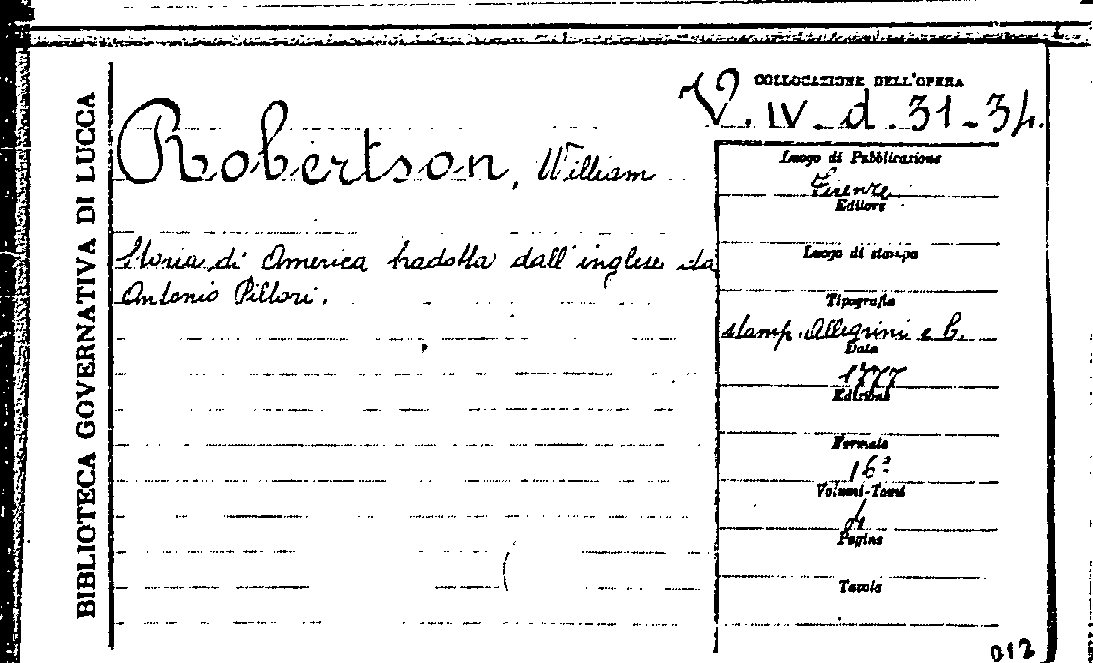 BIBLIOTECA GOVERNATIVA DI LUCCA
COLLOCAZIONE DELL'OPERA
V. IV. d. 31-34.
Robertson, William
Storia di America tradotta dall'inglese da
Antonio Pillori.
Luogo di Pubblicazione
Firenze
Editore
Luogo di stampa
Tipografia
stamp. Allegrini e C.
Data
1777
Edizione
Formato
16º
Volumi-Tomi
4
Pagine
Tavole
012